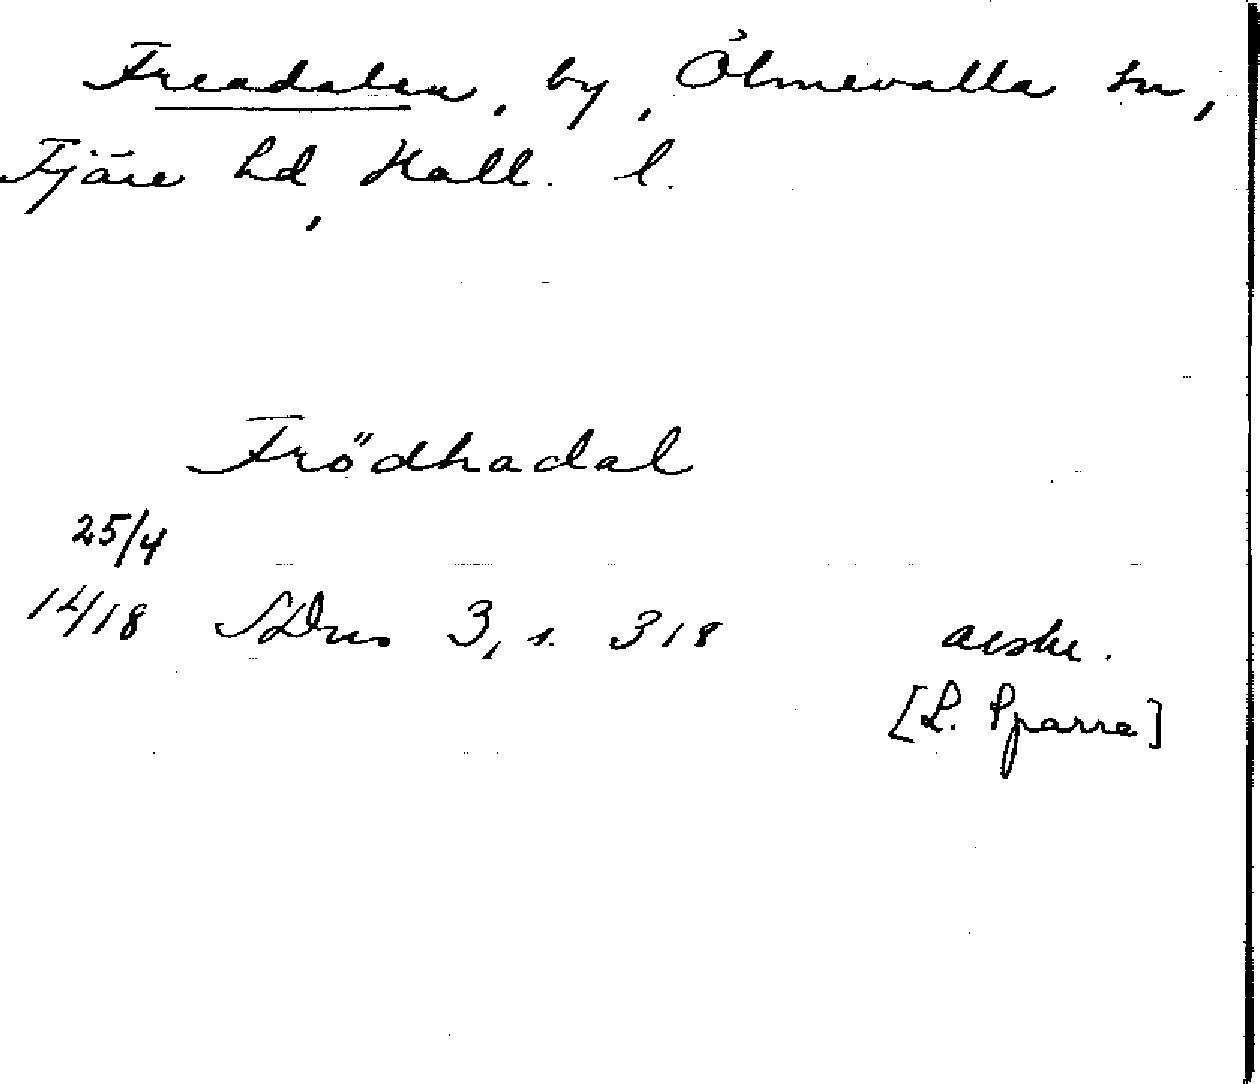 Freadalen, by, Ölmevalla sn,
Fjäre hd, Hall. l.
Frödhadal
25/4
1418 SDns 3, s. 318 avskr.
[L. Sparre]